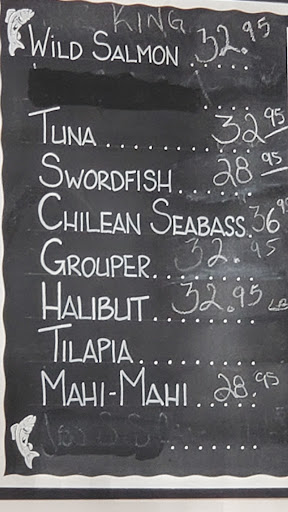 KING
WILD SALMON ..... 32.95
TUNA .......... 32 95
SWORDFISH ... 28 95
CHILEAN SEABASS. 36 95
GROUPER.. 32.95
HALIBUT .. 32.95 LB
TILAPIA ..........
MAHI-MAHI ..... 28.95